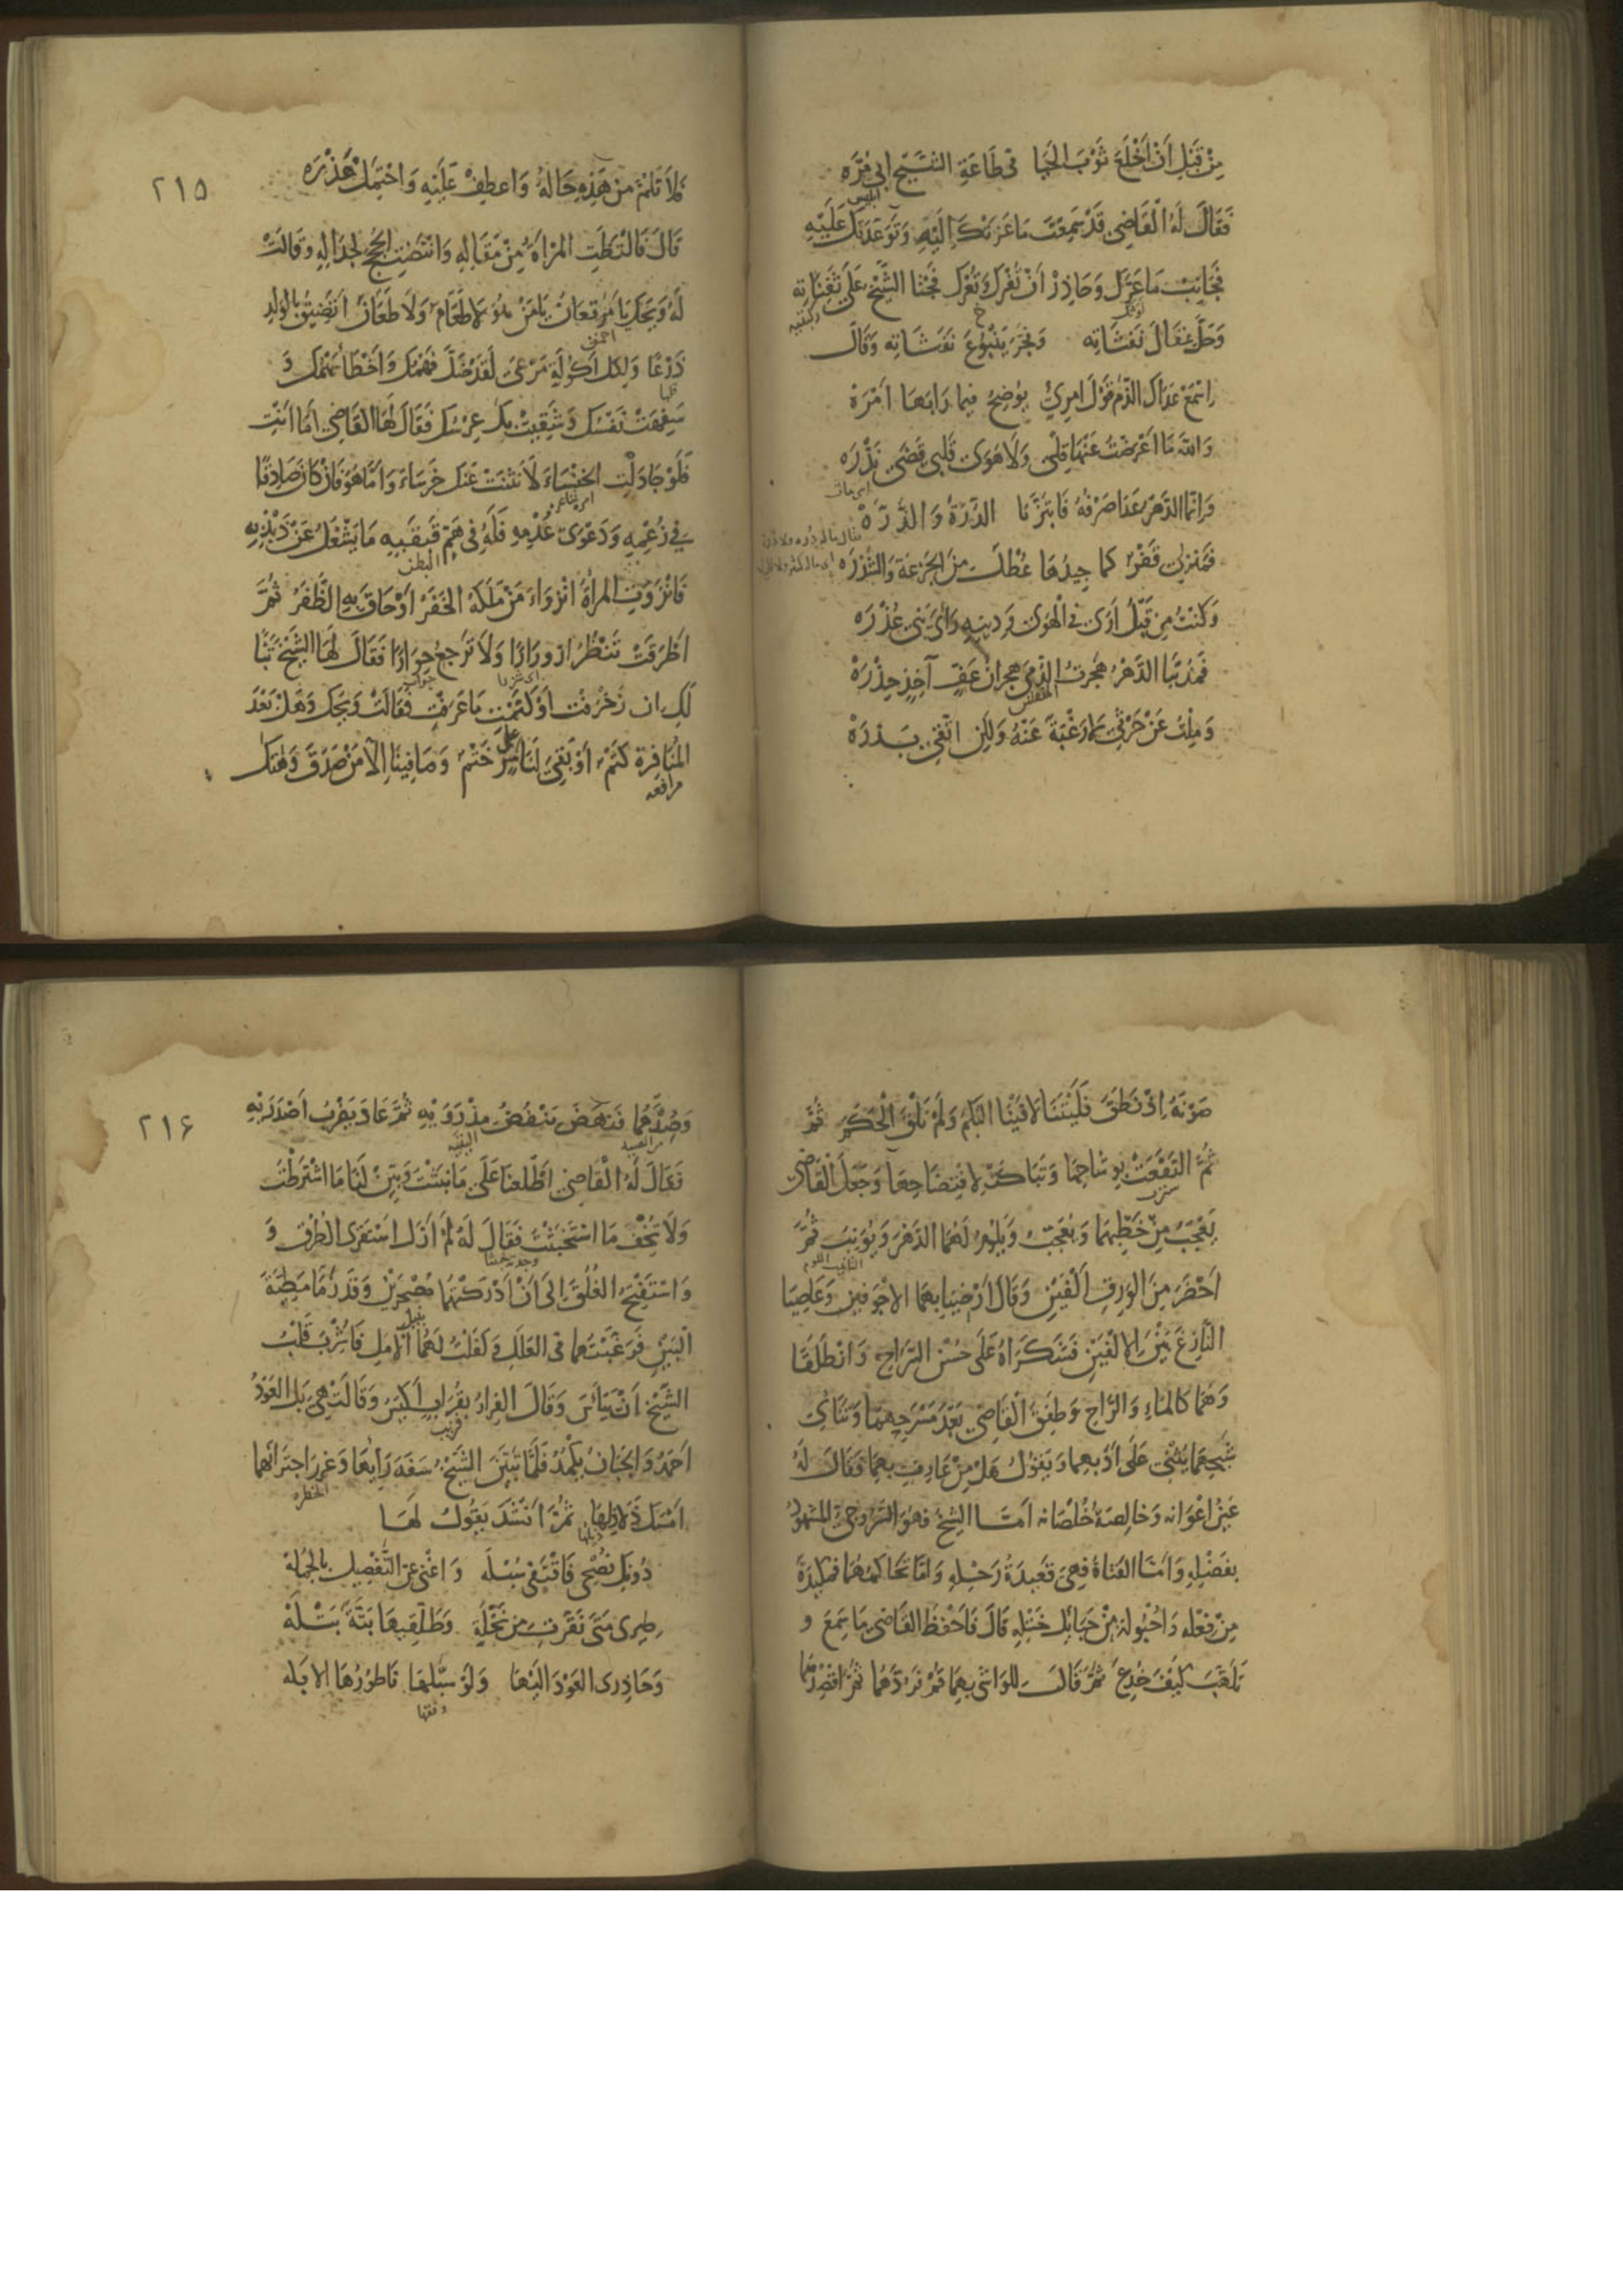 مِنْ قَبْلِ اَنْ اَخْلَعَ ثَوْبَ الحَيا فى طَاعَةِ الشَّيْخ ابى مُرَّه
ابليس
فَقَالَ لَهُ الْقَاضِى قَدْ سَمِعْتَ مَا عَزَتْكَ اِلَيْهِ وَتَوَعَّدَتْكَ عَلَيْهِ
فَجَانِبْ مَا عَرَّكَ وَحَاذِرْ اَنْ تُفْرَكَ وَتُعْرَك فَجَثَا الشَّيْخُ عَلَى ثَفِنَاتِه
ركبتيه
وَحَلَّ عِقَالَ نَفَثَاتِه وَفَجَّرَ يَنْبُوْعَ نَفَثَاتِه وَقَالَ
اِسْمَعْ عَدَاكَ الذَّم قَوْلَ امرِئٍ يُوضِحُ فيما رَابَهَا اَمْرَهْ
وَاللهِ مَا اَعْرَضْتُ عَنْهَا قِلًى وَلَا هَوَى قَلْبى قَضَى نَذْرَه
وَاِنَّمَا الدَّهْرُ عَدَا صَرْفُهُ فَابْتَزَّنَا الدُّرَّةَ وَالذَّرَّهْ
فَمَنْزِلى قَفْرٌ كما جِيدُهَا عُطْلٌ مِنَ الجَزْعَةِ وَالشَّذْرَه
وَكُنْتُ مِن قَبْلُ اَرَى فى الْهَوَى وَدِينِهِ رَاْىَ بَنِى عُذْرَه
فَمُذْ نَبَا الدَّهْرُ هَجَرْتُ الدُّمَى هِجْرَانَ عَفٍّ آخِذٍ حِذْرَهْ
وَمِلْتُ عَنْ حَرْثِى لَا رَغْبَةً عَنْهُ وَلكِن اَتَّقِى بَذْرَهْ
٢١٥
فَلَا تَلُمْ مَنْ هَذِهِ حَالُهُ وَاعطِفْ عَلَيْهِ وَاحْتَمِلْ هَذْرَه
قَالَ فَالْتَظَتِ المَرْاَةُ مِنْ مَقَالِهِ وَانْتَضَتِ الحُجَجَ لِجِدَالِهِ وَقَالَتْ
لَهُ وَيْحَكَ يَا مَرْقَعَانُ يَا مَنْ هُوَ لَا طَعَامٌ وَلَا طَعَانٌ اَتَضِيْقُ بِالوَلَدِ
احمق
ذَرْعًا وَلِكُلِّ اَكُوْلَةٍ مَرْعىً لَقَدْ ضَلَّ فَهْمُكَ وَاَخْطَاَ سَهْمُكَ وَ
سَفِهَتْ نَفْسُكَ وَشَقِيَتْ بِكَ عِرْسُكَ فَقَالَ لَهَا القَاضِى اَمَّا اَنْتِ
فَلَوْ جَادَلْتِ الخَنْسَاءَ لَانْثَنَتْ عَنْكِ خَرْسَاءَ وَاَمَّا هُوَ فَاِنْ كَانَ صَادِقًا
فِى زَعْمِهِ وَدَعْوَى عُدْمِهِ فَلَهُ فِى هَمِّ قَبْقَبِهِ مَا يَشْغَلُ عَنْ ذَبْذَبِهِ
البطن
فَانْزَوَتِ المَرْاَةُ انْزِوَاءَ مَنْ مَلَكَهُ الخَفَرُ اَوْ حَاقَ بِهِ الظَّفَرُ ثُمَّ
اَطْرَقَتْ تَنْظُرُ ازوِرَارًا وَلَا تَرجِعُ حِوَارًا فَقَالَ لَهَا الشَّيْخُ تَبًّا
جواب
لَكِ اِنْ زَخْرَفْتِ اَوْ كَتَمْتِ مَا عَرَفْتِ فَقَالَتْ وَيْحَكَ وَهَلْ بَعْدَ
المُنَافَرَةِ كَتْمٌ اَوْ بَقِىَ لَنَا عَلَى سِرٍّ خَتْمٌ وَمَا فِينَا اِلَّا مَنْ صَدَقَ وَهَتَكَ
مرافعه
صَوْنَهُ اِذْ نَطَقَ فَلَيْتَنَا لَاقَيْنَا البَكَمَ وَلَمْ نَلْقَ الْحَكَمَ ثُمَّ
ثُمَّ التَفَعَتْ بِوِشَاحِهَا وَتَبَاكَتْ لِافْتِضَاحِهَا وَجَعَلَ الْقَاضى
يَعْجَبُ مِنْ خَطْبِهِمَا وَيُعَجِّبُ وَيَلُوْمُ لَهُمَا الدَّهْرَ وَيُؤَنِّبُ ثُمَّ
التانيب اللوم
اَحْضَرَ مِنَ الوَرِقِ اَلْفَيْنِ وَقَالَ اَرْضِيَا بِهِمَا الاَجْوَفَيْنِ وَعَاصِيَا
النَّازِغَ بَيْنَ الاِلْفَيْنِ فَشَكَرَاهُ عَلَى حُسْنِ السَّرَاحِ وَانْطَلَقَا
وَهُمَا كَالمَاءِ وَالرَّاحِ وَطَفِقَ الْقَاضِى بَعْدَ مَسْرَحِهِمَا وَتَنَائِى
شَبَحِهِمَا يُثْنِى عَلَى اَدَبِهِمَا وَيَقُوْلُ هَلْ مِنْ عَارِفٍ بِهِمَا فَقَالَ لَهُ
عَيْنُ اَعْوَانِه وَخَالِصَةُ خُلْصَانِه اَمَّا الشَّيْخُ فَهُوَ السَّرُوجِىُّ المَشْهُودُ
بِفَضْلِهِ وَاَمَّا الفَتَاةُ فَهِىَ قَعِيدَةُ رَحْلِهِ وَاَمَّا تَحَاكُمُهُمَا فَمَكِيدَةٌ
مِنْ فِعْلِهِ وَاُحْبُوْلَةٌ مِنْ حَبَائِلِ خَتْلِهِ قَالَ فَاَحْفَظَ القَاضِىَ مَا سَمِعَ وَ
تَلَهَّبَ كَيْفَ خُدِعَ ثُمَّ قَالَ لِلوَاشِى بِهِمَا قُمْ فَرُدْهُمَا ثُمَّ اقْصِدْهُمَا
٢١۶
وَصِدْهُمَا فَنَهَضَ يَنْفُضُ مِذْرَوَيْهِ ثُمَّ عَادَ يَضْرِبُ اَصْدَرَيْهِ
من الصيد
فَقَالَ لَهُ الْقَاضِى اَظْلِعْنَا عَلَى مَا نَبَثْتَ وَبَيِّنْ لَنَا مَا اشْتَرَطْتَ
وَلَا تُخْفِ مَا اسْتَخْبَثْتَ فَقَالَ لَهُ لَمْ اَزَلْ اَسْتَقْرِى الطُّرُقَ وَ
وَاسْتَفْتِحُ الغُلُقَ اِلَى اَنْ اَدْرَكْتُهُمَا مُصْحِرَيْنِ وَقَدْ زَمَّا مَطِىَّةَ
البَيْنِ فَرَغَّبْتُهُمَا فِى العَلَلِ وَكَفَلْتُ لَهُمَا بِنَيْلِ الاَمَلِ فَاُشْرِبَ قَلْبُ
الشَّيْخِ اَنْ يَيْاَسَ وَقَالَ الفِرَارُ بِقُرَابٍ اَكْيَسُ وَقَالَتْ هِىَ بَلِ العَوْدُ
قريب
اَحْمَدُ وَالجَبَانُ يَكْمَدُ فَلَمَّا تَبَيَّنَ الشَّيْخُ سَفَهَ رَاْيِهَا وَغَرَرَ اجْتِرَائِهَا
الخطره
اَمْسَكَ ذَلَاذِلَهَا ثُمَّ اَنْشَدَ يَقُولُ لَهَا
ذيلها
دُونَكِ نُصْحِى فَاقْتَفِى سُبْلَه وَاغْنَىْ عَنِ التَّفْصِيلِ بِالجُمْلَهْ
طِيرِى مَتَى نَقَّرْتِ مِنْ نَخْلَةٍ وَطَلِّقِيهَا بَتَّةً بَتْلَهْ
وَحَاذِرِى العَوْدَ اِلَيْهَا وَلَوْ سَبَّلَهَا نَاطُوْرُهَا الاَبْلَه
وقفها